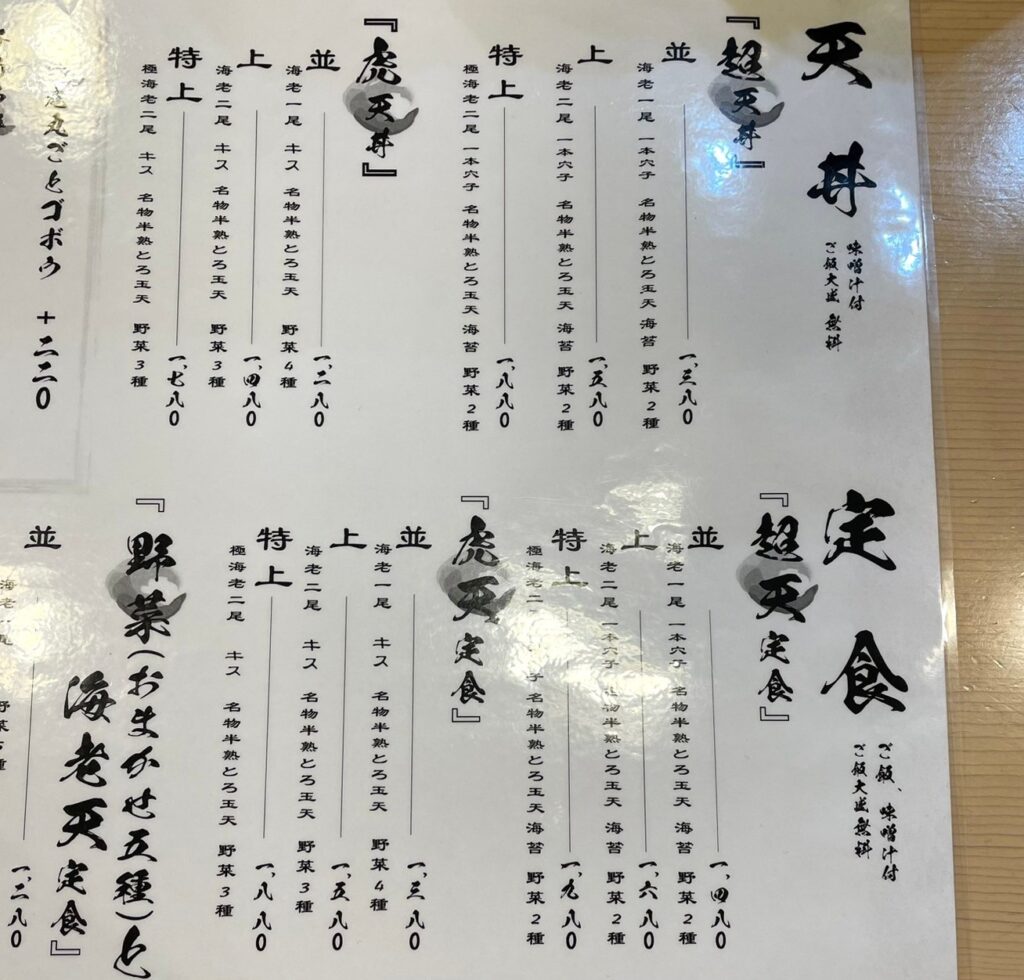 天丼
味噌汁付
ご飯大盛無料
『超天丼』
並 一、三八〇
海老一尾 一本穴子 名物半熟とろ玉天 海苔 野菜2種
上 一、五八〇
海老二尾 一本穴子 名物半熟とろ玉天 海苔 野菜2種
特上 一、八八〇
極海老二尾 一本穴子 名物半熟とろ玉天 海苔 野菜2種
『虎天丼』
並 一、二八〇
海老一尾 キス 名物半熟とろ玉天 野菜4種
上 一、四八〇
海老二尾 キス 名物半熟とろ玉天 野菜3種
特上 一、七八〇
極海老二尾 キス 名物半熟とろ玉天 野菜3種
丸ごとゴボウ +二二〇
定食
ご飯、味噌汁付
ご飯大盛無料
『超天定食』
並 一、四八〇
海老一尾 一本穴子 名物半熟とろ玉天 海苔 野菜2種
上 一、六八〇
海老二尾 一本穴子 名物半熟とろ玉天 海苔 野菜2種
特上 一、九八〇
極海老二 子 名物半熟とろ玉天 海苔 野菜2種
『虎天定食』
並 一、三八〇
海老一尾 キス 名物半熟とろ玉天 野菜4種
上 一、五八〇
海老二尾 キス 名物半熟とろ玉天 野菜3種
特上 一、八八〇
極海老二尾 キス 名物半熟とろ玉天 野菜3種
『野菜(おまかせ五種)と
海老天定食』
並 一、二八〇
海老